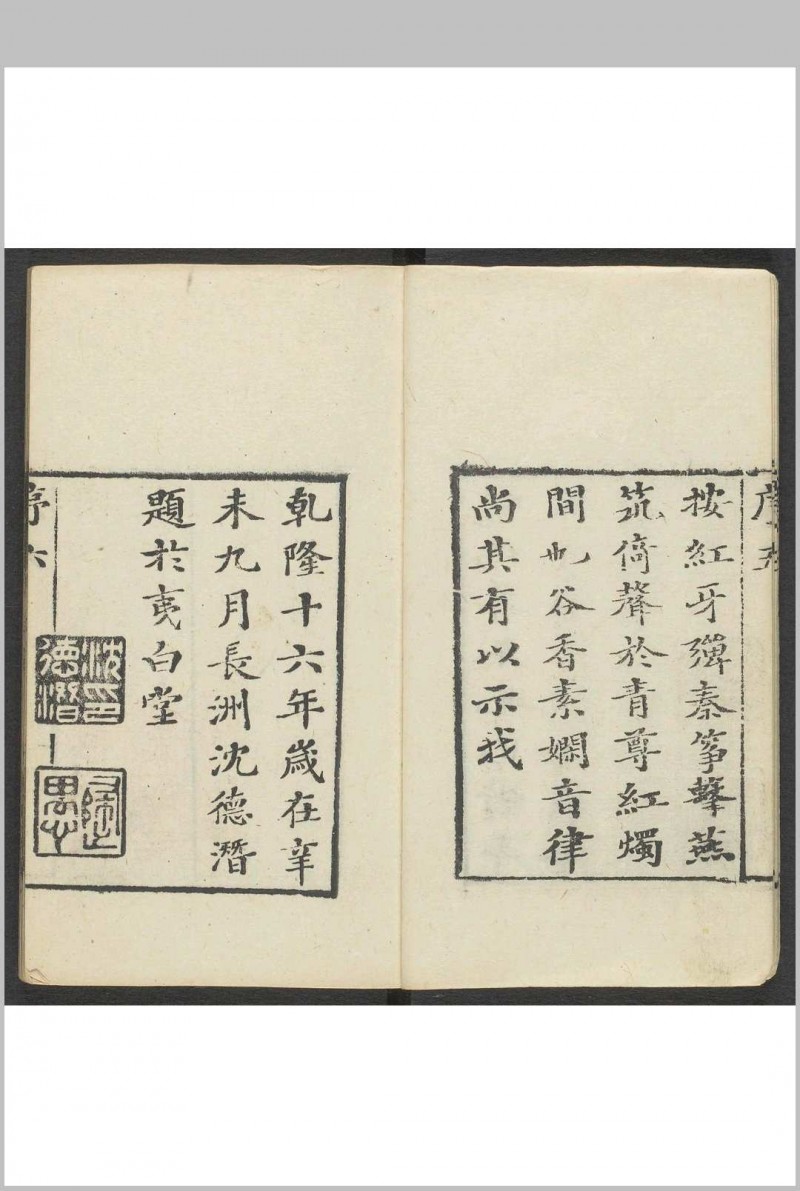 序五
按紅牙彈秦筝擊燕
筑倚聲於青尊紅燭
間也谷香素嫻音律
尚其有以示我
乾隆十六年歲在辛
未九月長洲沈德潛
題於夷白堂
沈印德潛
序六